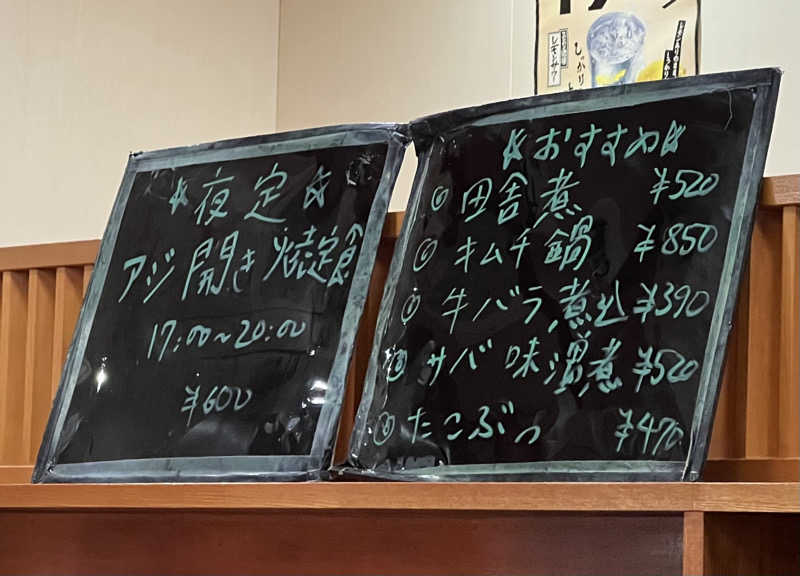 ☆夜定☆
アジ開き焼定食
17:00～20:00
¥600
☆おすすめ☆
田舎煮 ¥520
キムチ鍋 ¥850
牛バラ煮込 ¥390
サバ味噌煮 ¥520
たこぶつ ¥470
レモンサワー